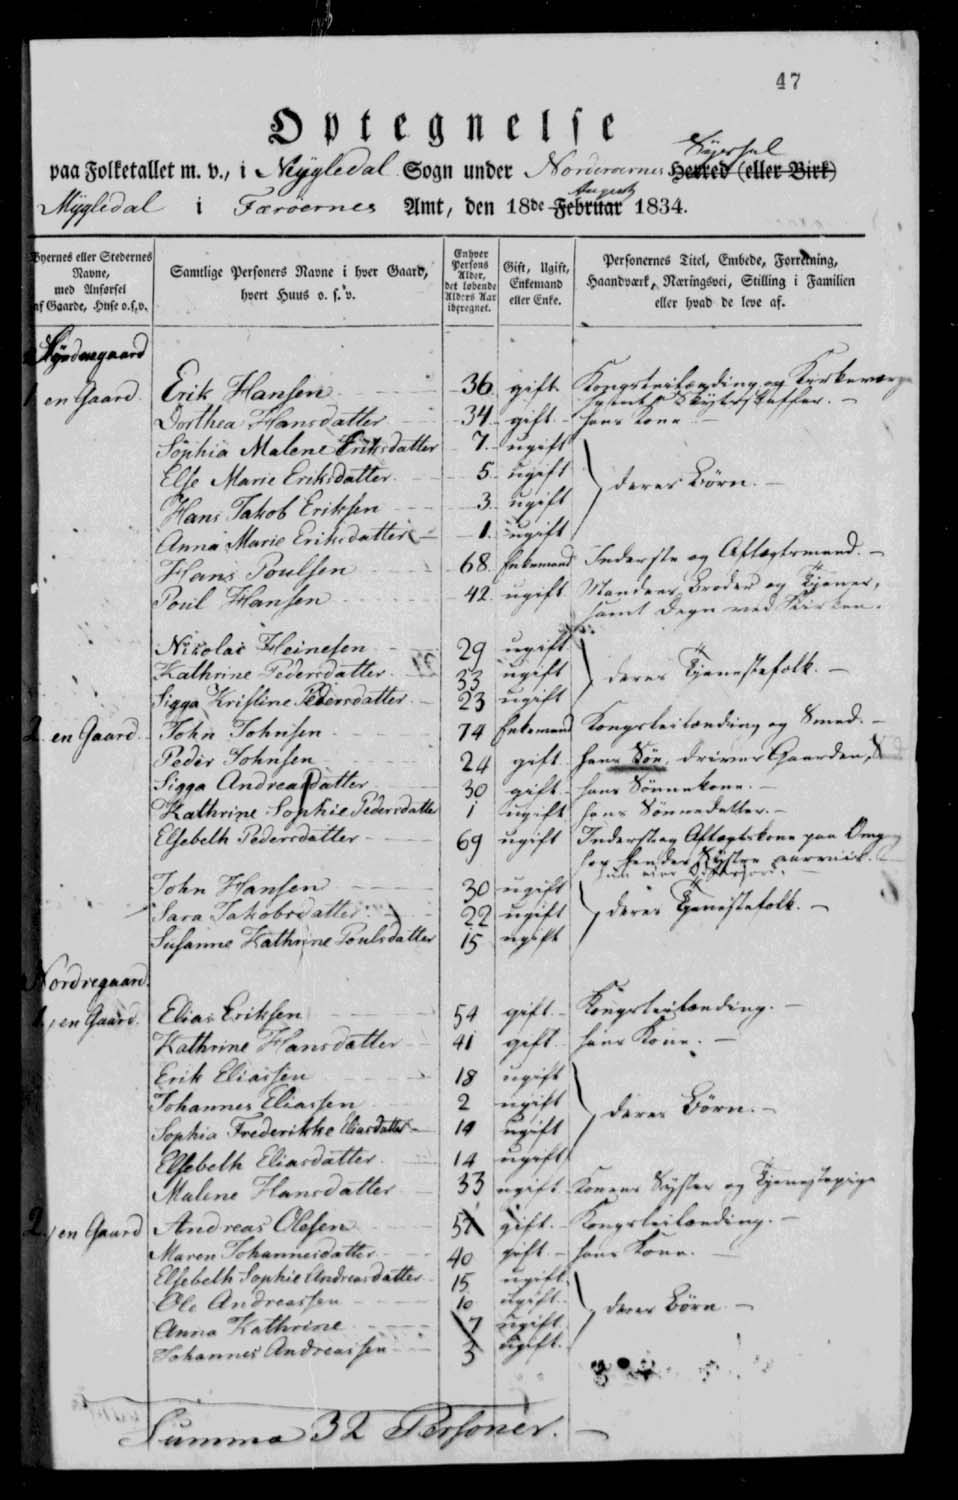 47
Optegnelse
paa Folketallet m. v., i Mygledal Sogn under Norderoernes Syssel Herred (eller Birk)
Mygledal i Færöernes Amt, den 18de August Februar 1834.
Byernes eller Stedernes Navne, med Anførsel af Gaarde, Huse o.s.v.
Samtlige Personers Navne i hver Gaard, hvert Huus o. s. v.
Enhver Persons Alder, det løbende Alders Aar iberegnet.
Gift, Ugift, Enkemand eller Enke.
Personernes Titel, Embede, Forretning, Haandværk, Næringsvei, Stilling i Familien eller hvad de leve af.
Syndregaard
1 en Gaard. Erik Hansen 36 gift Kongsleilænding og Kirkeværge
samt Skydsskaffer.
Dorthea Hansdatter 34 gift hans Kone
Sophia Malene Eriksdatter 7 ugift
Else Marie Eriksdatter 5 ugift deres Börn.
Hans Jakob Eriksen 3 ugift
Anna Marie Eriksdatter 1 ugift
Hans Poulsen 68 Enkemand Inderste og Aftægtsmand.
Poul Hansen 42 ugift Mandens Broder og Tjener,
samt Degn ved Kirken.
Nikolai Heinesen 29 ugift
Kathrine Pedersdatter 33 ugift deres Tjenestefolk.
Sigga Kristine Pedersdatter 23 ugift
2 en Gaard. John Johnsen 74 Enkemand Kongsleilænding og Smed.
Peder Johnsen 24 gift hans Sön, driver Gaarden,
Sigga Andreasdatter 30 gift hans Sönnekone.
Kathrine Sophie Pedersdatter 1 ugift hans Sönnedatter.
Elsebeth Pedersdatter 69 ugift Inderste og Aftægtskone paa
hos hendes Syster
John Hansen 30 ugift
Sara Jakobsdatter 22 ugift deres Tjenestefolk.
Susanne Kathrine Poulsdatter 15 ugift
Nordregaard.
1, en Gaard. Elias Eriksen 54 gift Kongsleilænding.
Kathrine Hansdatter 41 gift hans Kone.
Erik Eliassen 18 ugift
Johannes Eliassen 2 ugift deres Börn.
Sophia Frederikke Eliasdatter 19 ugift
Elsebeth Eliasdatter 14 ugift
Malene Hansdatter 33 ugift Konens Syster og Tjenestepige
2, en Gaard Andreas Olesen 51 gift Kongsleilænding.
Maren Johannesdatter 40 gift hans Kone.
Elsebeth Sophie Andreasdatter 15 ugift
Ole Andreassen 10 ugift deres Börn
Anna Kathrine 7 ugift
Johannes Andreassen 3 ugift.
Summa 32 Personer.